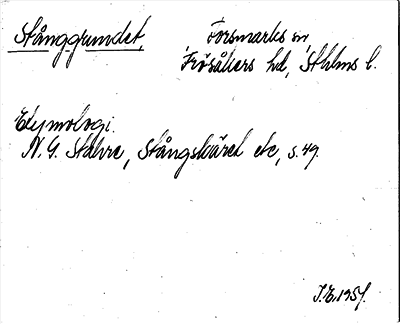 Stånggrundet, Forsmarks sn
Frösåkers hd, Sthlms l.
Etymologi.
N. G. Stahre, Stångskäret etc, s. 49.
J.E. 1951.